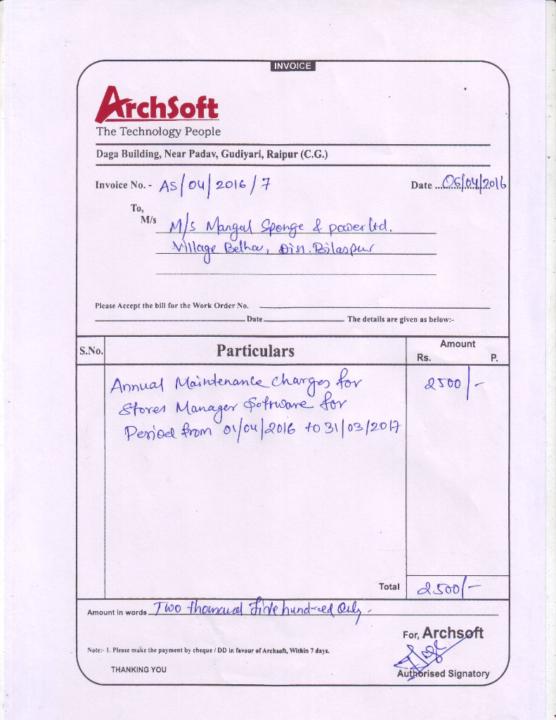 INVOICE
ArchSoft
The Technology People
Daga Building, Near Padav, Gudiyari, Raipur (C.G.)
Invoice No. - AS/04/2016/7 Date ... 06/04/2016
To,
M/s M/s Mangal Sponge & power ltd.
Village Belha, Dist. Bilaspur
Please Accept the bill for the Work Order No.
Date The details are given as below:-
S.No. Particulars Amount
Rs. P.
Annual Maintenance charges for 2500/-
Stores Manager Software for
Period from 01/04/2016 to 31/03/2017
Total 2500/-
Amount in words Two thousand Five hundred Only.
For, Archsoft
Note:- 1. Please make the payment by cheque / DD in favour of Archsoft, Within 7 days.
THANKING YOU Authorised Signatory